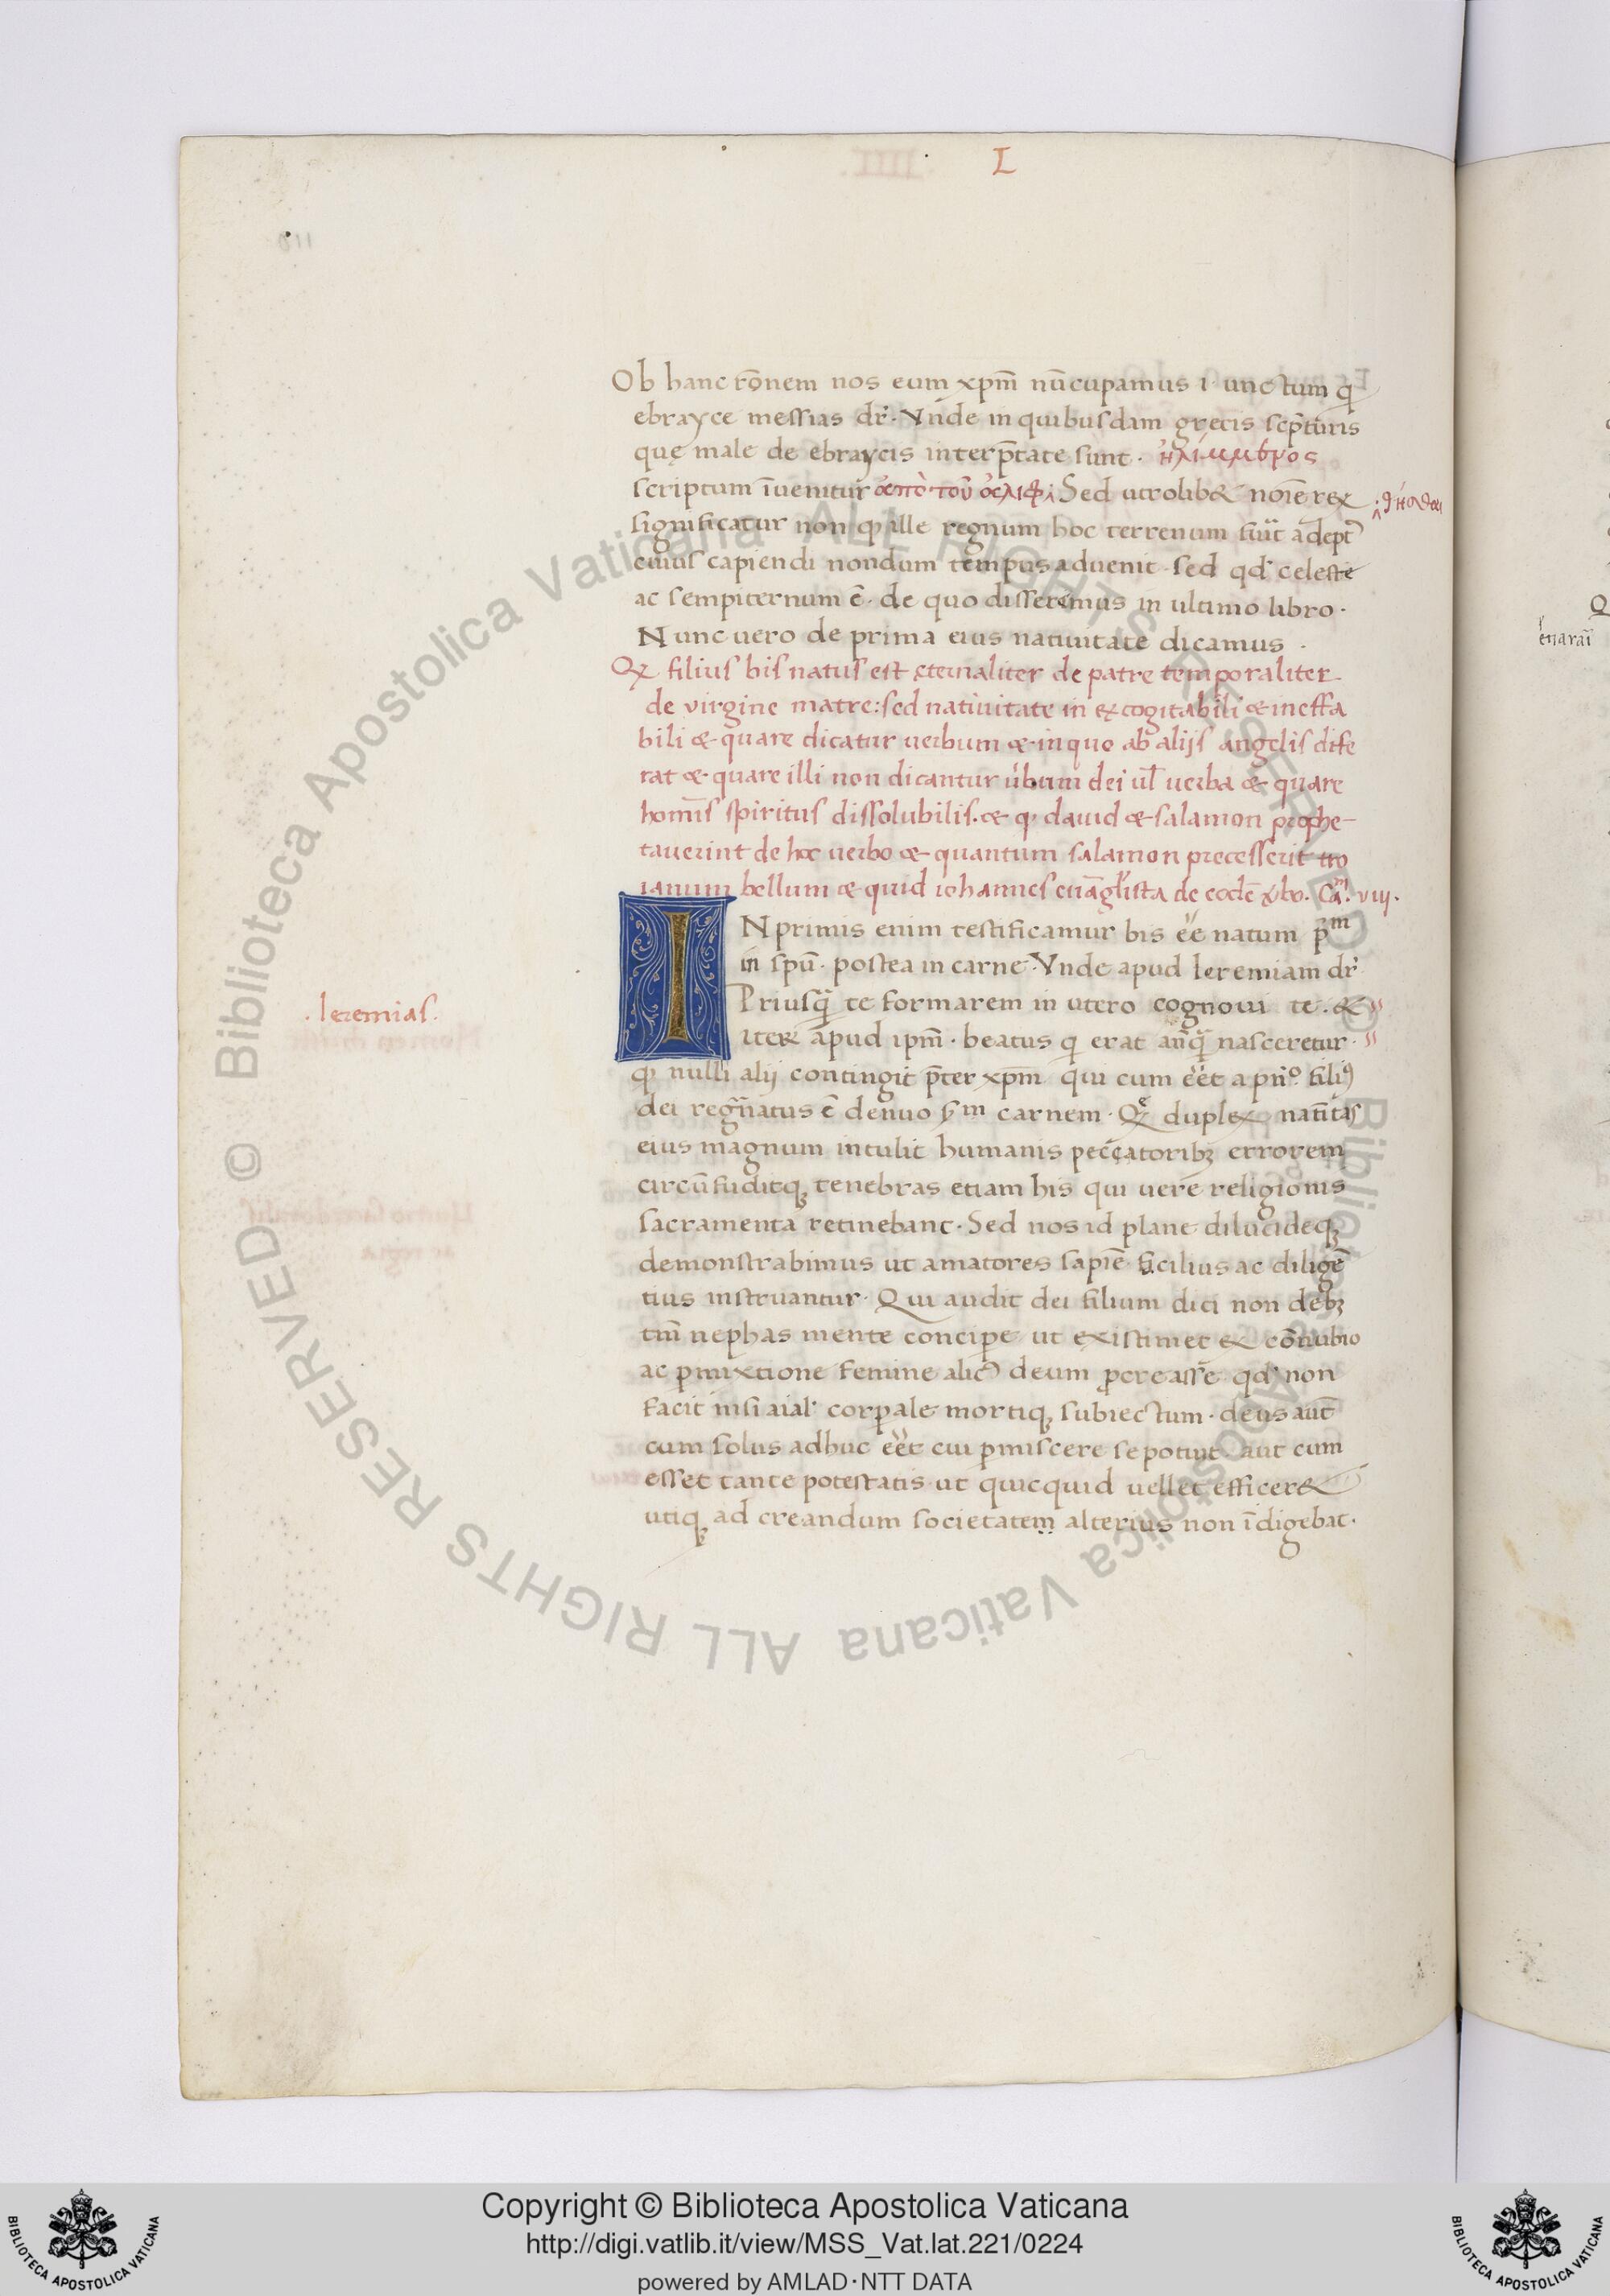 L
Ob hanc rōnem nos eum xpm̄ nūcupamus i· unctum q
ebrayce messias dr̄· Vnde in quibusdam grecis scp̄turis
quę male de ebraycis interp̄tate sunt·
scriptum īuenitur ἀπὸ τοῦ Sed utrolib& noīe rex
significatur non q ille regnum hoc terrenum fu̅it adept⁹
cuius capiendi nondum tempus aduenit· sed qd̓ celeste
ac sempiternum ē· de quo disseremus in ultimo libro·
Nunc uero de prima eius natiuitate dicamus·
filius bis natus est ęternaliter de patre temporaliter
de virgine matre: sed natiuitate in excogitabili & ineffa
bili & quare dicatur uerbum & in quo ab alijs angelis dife
rat & quare illi non dicantur u̓bum dei ul̄ uerba & quare
homīs spiritus dissolubilis· & q dauid & salamon prophe-
tauerint de hoc uerbo & quantum salamon precesserit tro
ianum bellum & quid iohannes euāgl̓ista de eodē Ca͞m· viij·
IN primis enim testificamur bis ēē natum p̄ᵐ
in spū· postea in carne· Vnde apud Ieremiam dr̄
·Ieremias·
Priusq̄ te formarem in utero cognoui te· &
iter apud ipm̄· beatus q erat an̄q̄ nasceretur·
q nulli alij contingit p̄ter xpm̄ qui cum ēēt a pn̄º fili⁹
dei regn̄atus ē denuo carnem· duplex natīitas
eius magnum intulit humanis peccatoribꝫ errorem
circūfuditqꝫ tenebras etiam his qui uere religionis
sacramenta retinebant· Sed nos id plane dilucideqꝫ
demonstrabimus ut amatores sapiē facilius ac diligē
tius instruantur· Qui audit dei filium dici non debꝫ
tm̄ nephas mente concipe ut existimet & cōnubio
ac pmixtione femine alic⁹ deum pcreasse qd̓ non
facit nisi aial̓ corpale mortiqꝫ subiectum· deus aut̄
cum solus adhuc ēēt cui pmiscere se potuit· aut cum
esset tante potestatis ut quicquid uellet efficer&
utiqꝫ ad creandum societatem alterius non īdigebat·
Copyright © Biblioteca Apostolica Vaticana
http://digi.vatlib.it/view/MSS_Vat.lat.221/0224
powered by AMLAD·NTT DATA